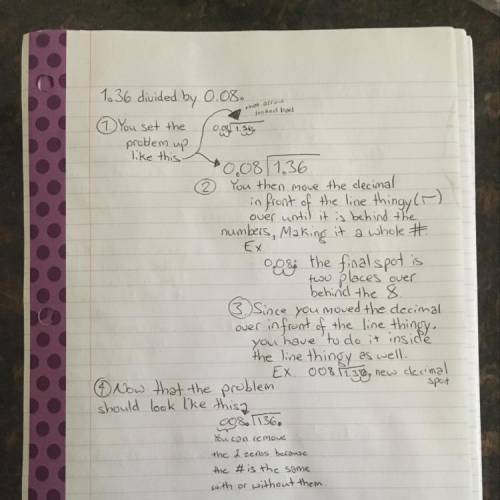 1.36 divided by 0.08.
that arrow
looked bad
① You set the
problem up
like this
0.08 1.36
0.08 1.36
② You then move the decimal
in front of the line thingy (
over until it is behind the
numbers, Making it a whole #.
Ex
0.08. the final spot is
two places over
behind the 8
③ Since you moved the decimal
over in front of the line thingy,
you have to do it inside
the line thingy as well.
Ex. 008 1.36. new decimal
spot
④ Now that the problem
should look like this
008. 136.
You can remove
the 2 zeros because
the # is the same
with or without them.